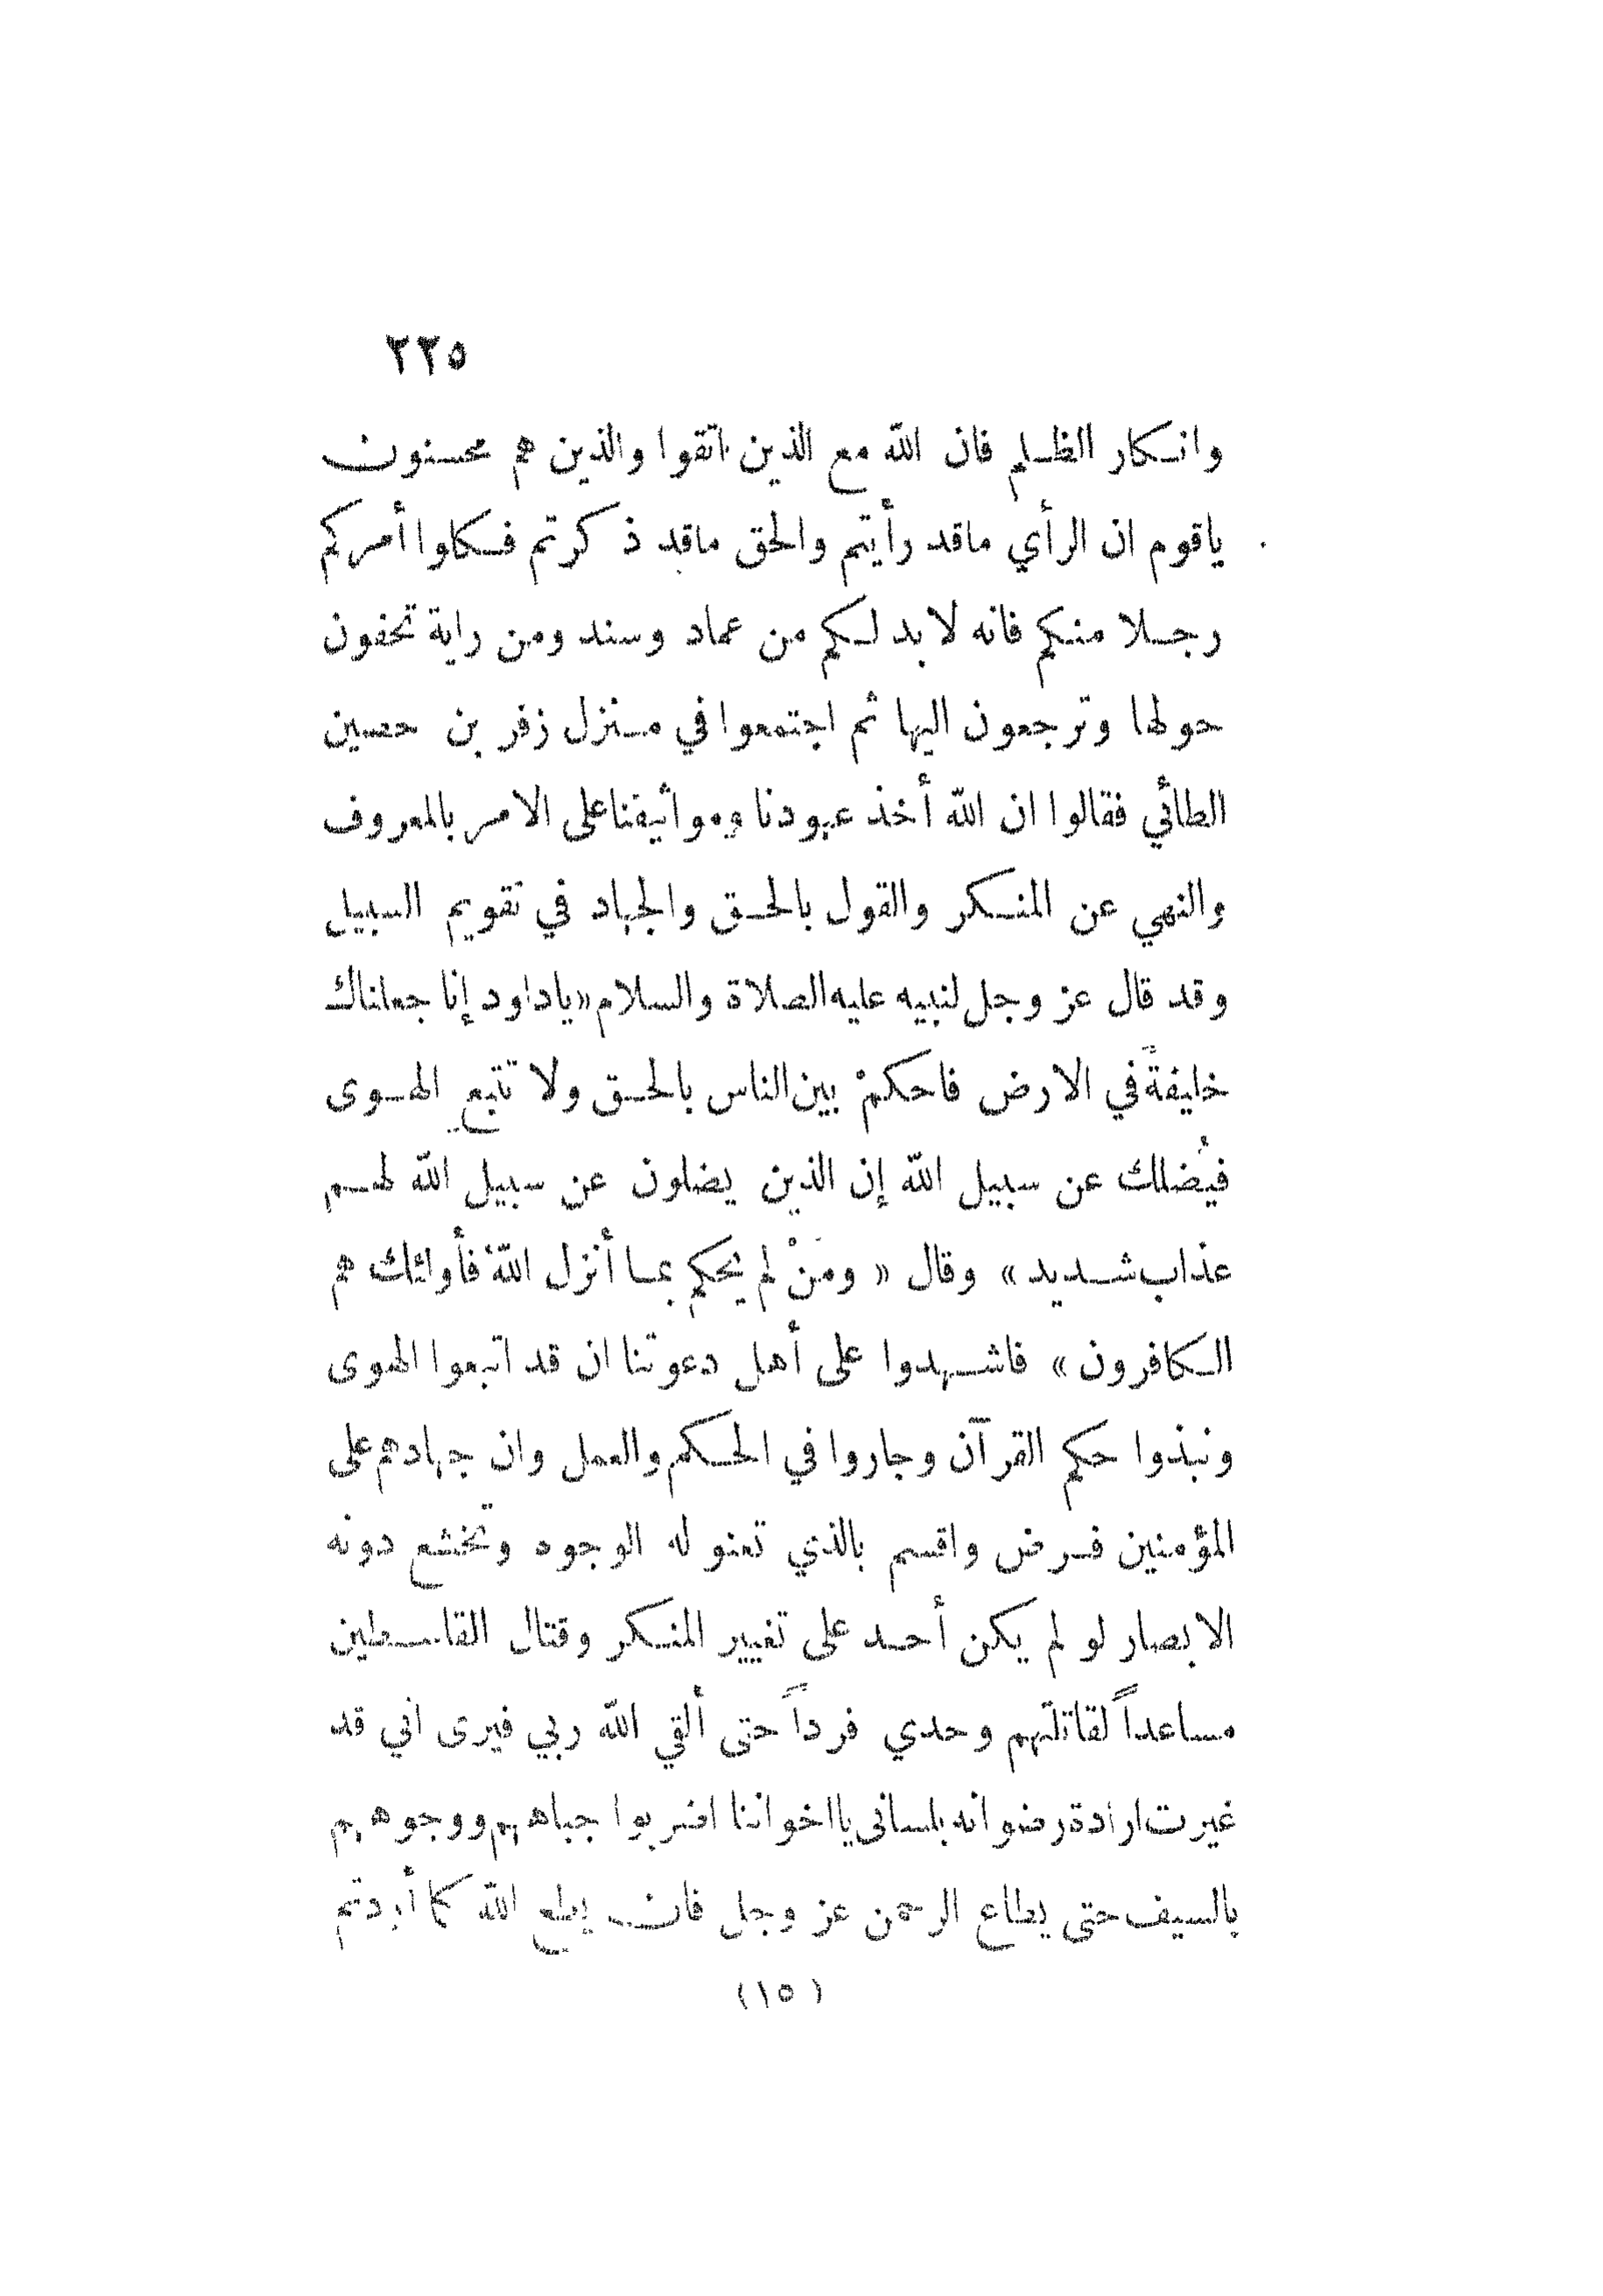 ٢٢٥
وانكار الظلم فان الله مع الذين اتقوا والذين هم محسنون
ياقوم ان الرأي ماقد رأيتم والحق ماقد ذكرتم فكلوا أمركم
رجلا منكم فانه لا بد لكم من عماد وسند ومن راية تحفون
حولها وترجعون اليها ثم اجتمعوا في منزل زفر بن حصين
الطائي فقالوا ان الله أخذ عهودنا ومواثيقنا على الامر بالمعروف
والنهي عن المنكر والقول بالحق والجهاد في تقويم السبيل
وقد قال عز وجل لنبيه عليه الصلاة والسلام «ياداود إنا جعلناك
خليفةً في الارض فاحكمْ بين الناس بالحق ولا تتبع الهوى
فيُضلك عن سبيل الله إن الذين يضلون عن سبيل الله لهم
عذاب شديد» وقال «ومَنْ لم يحكم بما أنزل اللهُ فأولئك هم
الكافرون» فاشهدوا على أهل دعوتنا ان قد اتبعوا الهوى
ونبذوا حكم القرآن وجاروا في الحكم والعمل وان جهادهم على
المؤمنين فرض واقسم بالذي تعنو له الوجوه وتخشع دونه
الابصار لو لم يكن أحد على تغيير المنكر وقتال القاسطين
مساعداً لقاتلتهم وحدي فرداً حتى ألقي الله ربي فيرى اني قد
غيرت ارادة رضوانه بلساني يااخواننا اضربوا جباههم ووجوههم
بالسيف حتى يطاع الرحمن عز وجل فان يطع الله كما أردتم
(١٥)